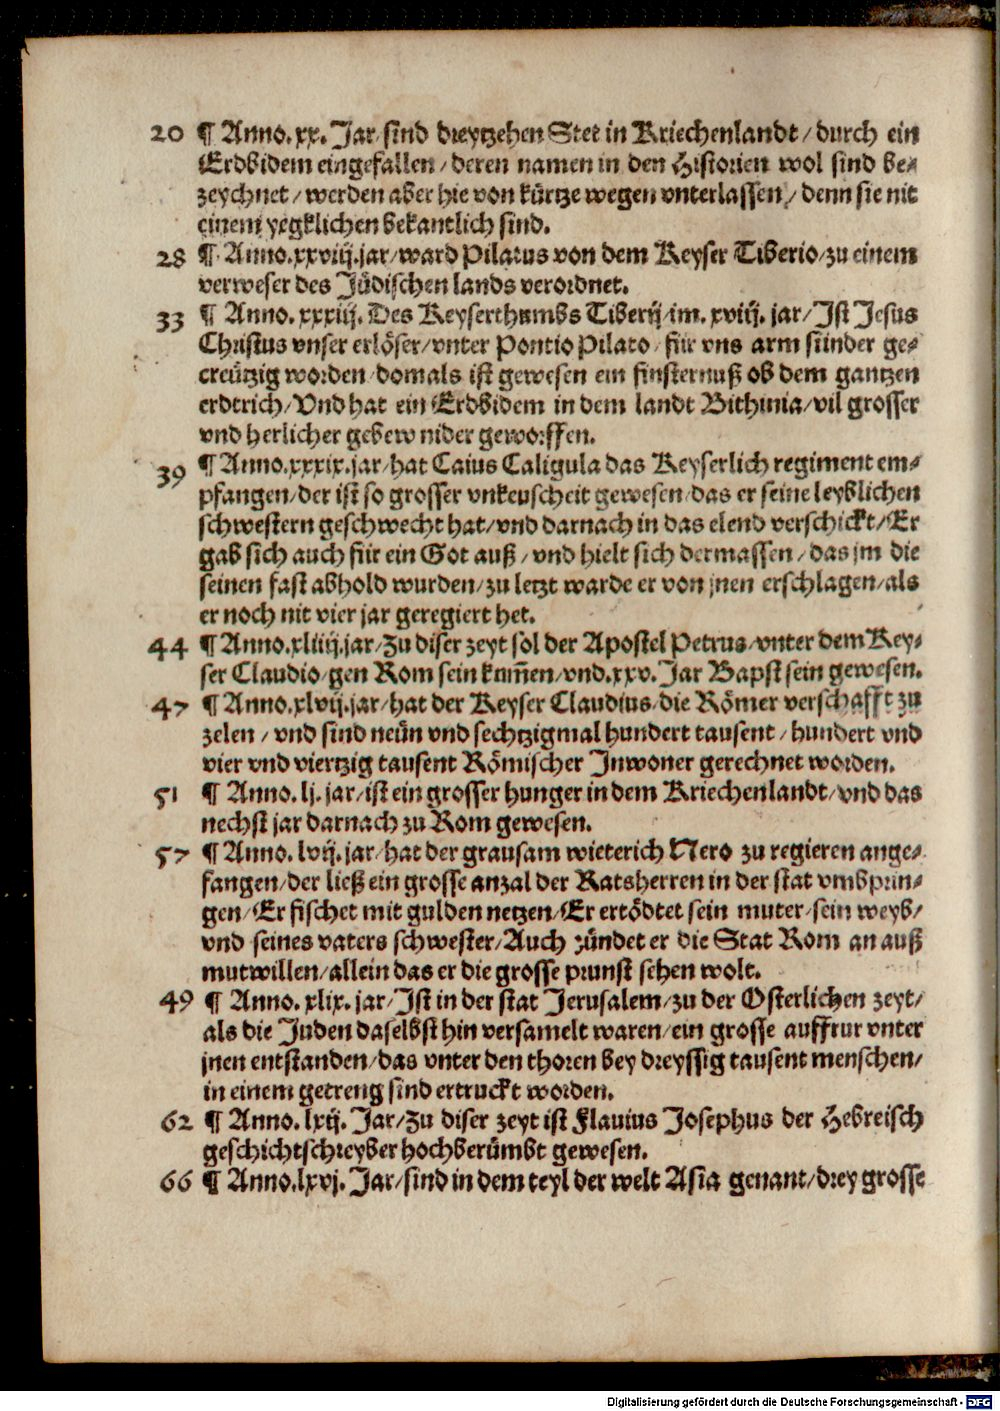 20 ¶ Anno. xx. Jar/ sind dreytzehen Stet in Kriechenlandt/ durch ein
Erdbidem eingefallen/ deren namen in den Historien wol sind be⸗
zeychnet/ werden aber hie von kürtze wegen vnterlassen/ denn sie nit
einem yegklichen bekantlich sind.
28 ¶ Anno. xxviij. jar/ ward Pilatus von dem Keyser Tiberio/ zu einem
verweser des Jüdischen lands verordnet.
33 ¶ Anno. xxxiij. Des Keyserthumbs Tiberij/ im. xviij. jar/ Ist Jesus
Christus vnser erlöser/ vnter Pontio Pilato/ für vns arm sünder ge⸗
creützig worden/ domals ist gewesen ein finsternuß ob dem gantzen
erdtrich/ Vnd hat ein Erdbidem in dem landt Bithinia/ vil grosser
vnd herlicher gebew nider geworffen.
39 ¶ Anno. xxxix. jar/ hat Caius Caligula das Keyserlich regiment em⸗
pfangen/ der ist so grosser vnkeuscheit gewesen/ das er seine leyblichen
schwestern geschwecht hat/ vnd darnach in das elend verschickt/ Er
gab sich auch für ein Got auß/ vnd hielt sich dermassen/ das jm die
seinen fast abhold wurden/ zu letzt warde er von jnen erschlagen/ als
er noch nit vier jar geregiert het.
44 ¶ Anno. xliiij. jar/ Zu diser zeyt sol der Apostel Petrus/ vnter dem Key⸗
ser Claudio/ gen Rom sein kum̄en/ vnd. xxv. Jar Bapst sein gewesen.
47 ¶ Anno. xlvij. jar/ hat der Keyser Claudius/ die Römer verschafft zu
zelen/ vnd sind neün vnd sechtzigmal hundert tausent/ hundert vnd
vier vnd viertzig tausent Römischer Inwoner gerechnet worden.
51 ¶ Anno. lj. jar/ ist ein grosser hunger in dem Kriechenlandt/ vnd das
nechst jar darnach zu Rom gewesen.
57 ¶ Anno. lvij. jar/ hat der grausam wieterich Nero zu regieren ange⸗
fangen/ der ließ ein grosse anzal der Ratsherren in der stat vmbprin⸗
gen/ Er fischet mit gulden netzen/ Er ertödtet sein muter/ sein weyb/
vnd seines vaters schwester/ Auch zündet er die Stat Rom an auß
mutwillen/ allein das er die grosse prunst sehen wolt.
49 ¶ Anno. xlix. jar/ Ist in der stat Jerusalem/ zu der Osterlichen zeyt/
als die Juden daselbst hin versamelt waren/ ein grosse auffrur vnter
jnen entstanden/ das vnter den thoren bey dreyssig tausent menschen/
in einem getreng sind ertruckt worden.
62 ¶ Anno. lxij. Jar/ Zu diser zeyt ist Flauius Josephus der Hebreisch
geschichtschreyber hochberümbt gewesen.
66 ¶ Anno. lxvj. Jar/ sind in dem teyl der welt Asia genant/ drey grosse
Digitalisierung gefördert durch die Deutsche Forschungsgemeinschaft - DFG